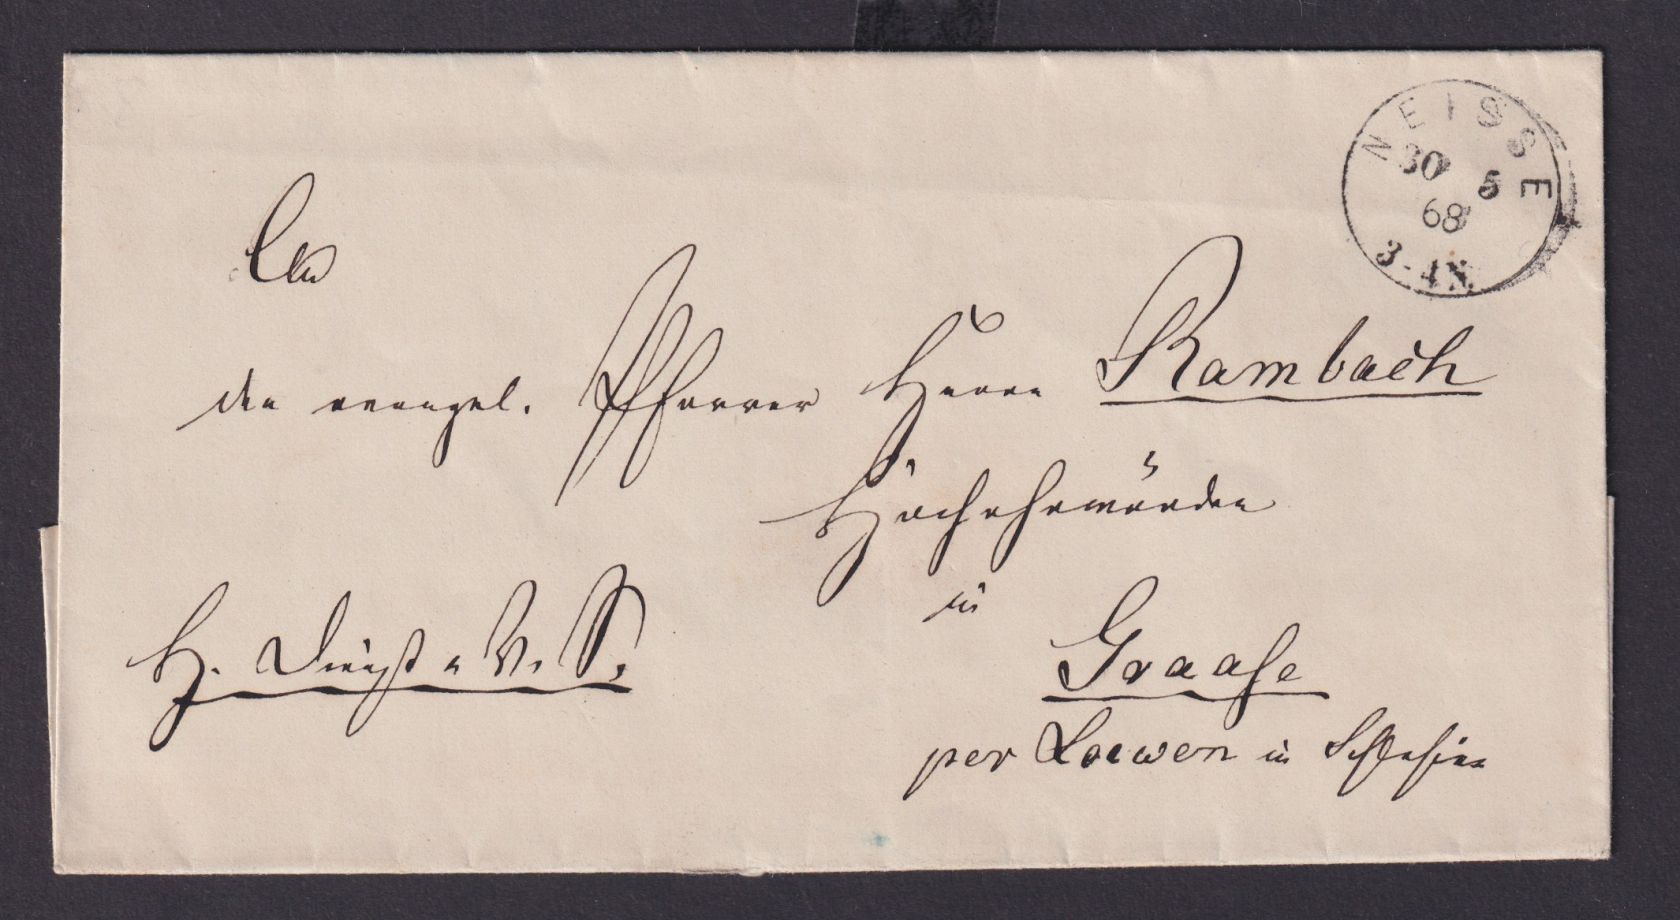 NEISSE
30 5
68
3-4N.
An
den evangel. Pfarrer Herrn Rambach
Hochehrwürden
in
H. Dienst u. V. S.
Graase
per Loewen in Schlesien